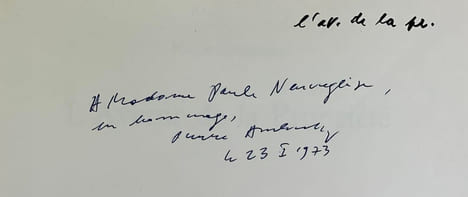 l'av. de la pr.
A Madame Paule Neuveglise,
en hommage,
Pierre
le 23 I 1973